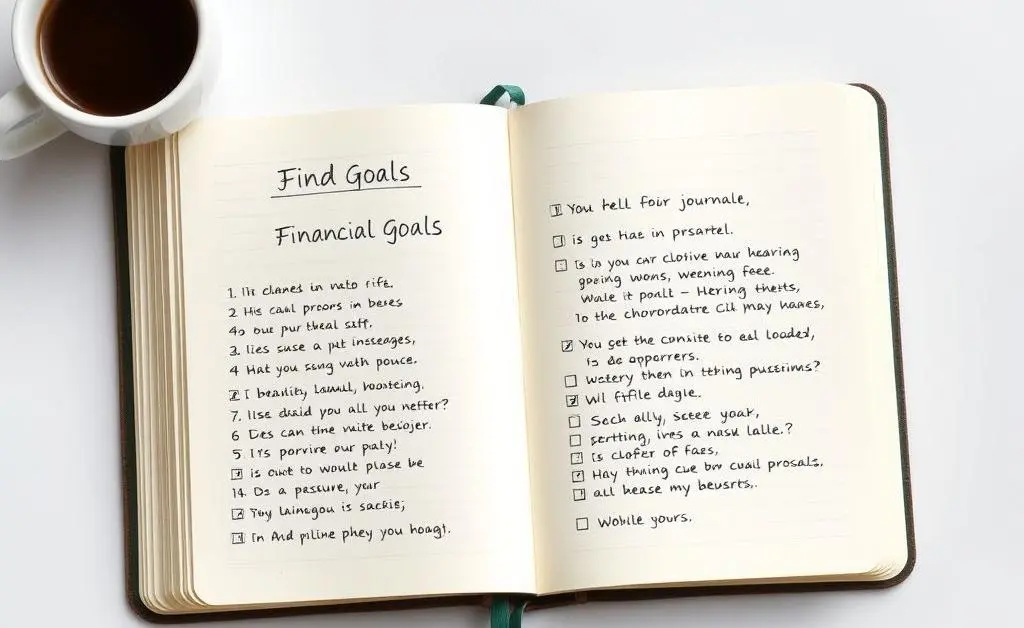 Find Goals
Financial Goals
1. Itı claned in vato fife.
2 His caal proors in beses
4o oue pur theal siff.
3. lies suse a pit insceages,
4 Hat you ssng vath pouce.
I beaility, Laswll, hoosteing.
7. Ilse draid you all you netter?
6 Des can the vuite besojer.
5. It's porvire our piaty!
is owt to woult please be
14. Do a pascure, year
Toy Laingou is sackis;
In And piline phey you hoagt.
You hell foir journale,
is get hae in prsartel.
Is in you car clotive naw hearing
going wons, weening feee.
Wale it poalt – Hering thetts,
To the chorordatre Cll may hanes,
You get the consite to eal loaded,
is de opporrers.
Wetery then in tthing puserims?
Wil ftfile dagle.
Sech ally, scese yoak,
sertting, ives a nask lalle.?
Is clofer of faes,
Hay thining cue bw cuail prosals.
all hease my beusrts,.
Wobile yours.